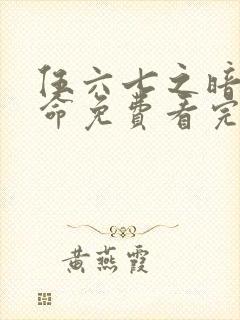 伍六七之暗
命免费看完
黄燕霞